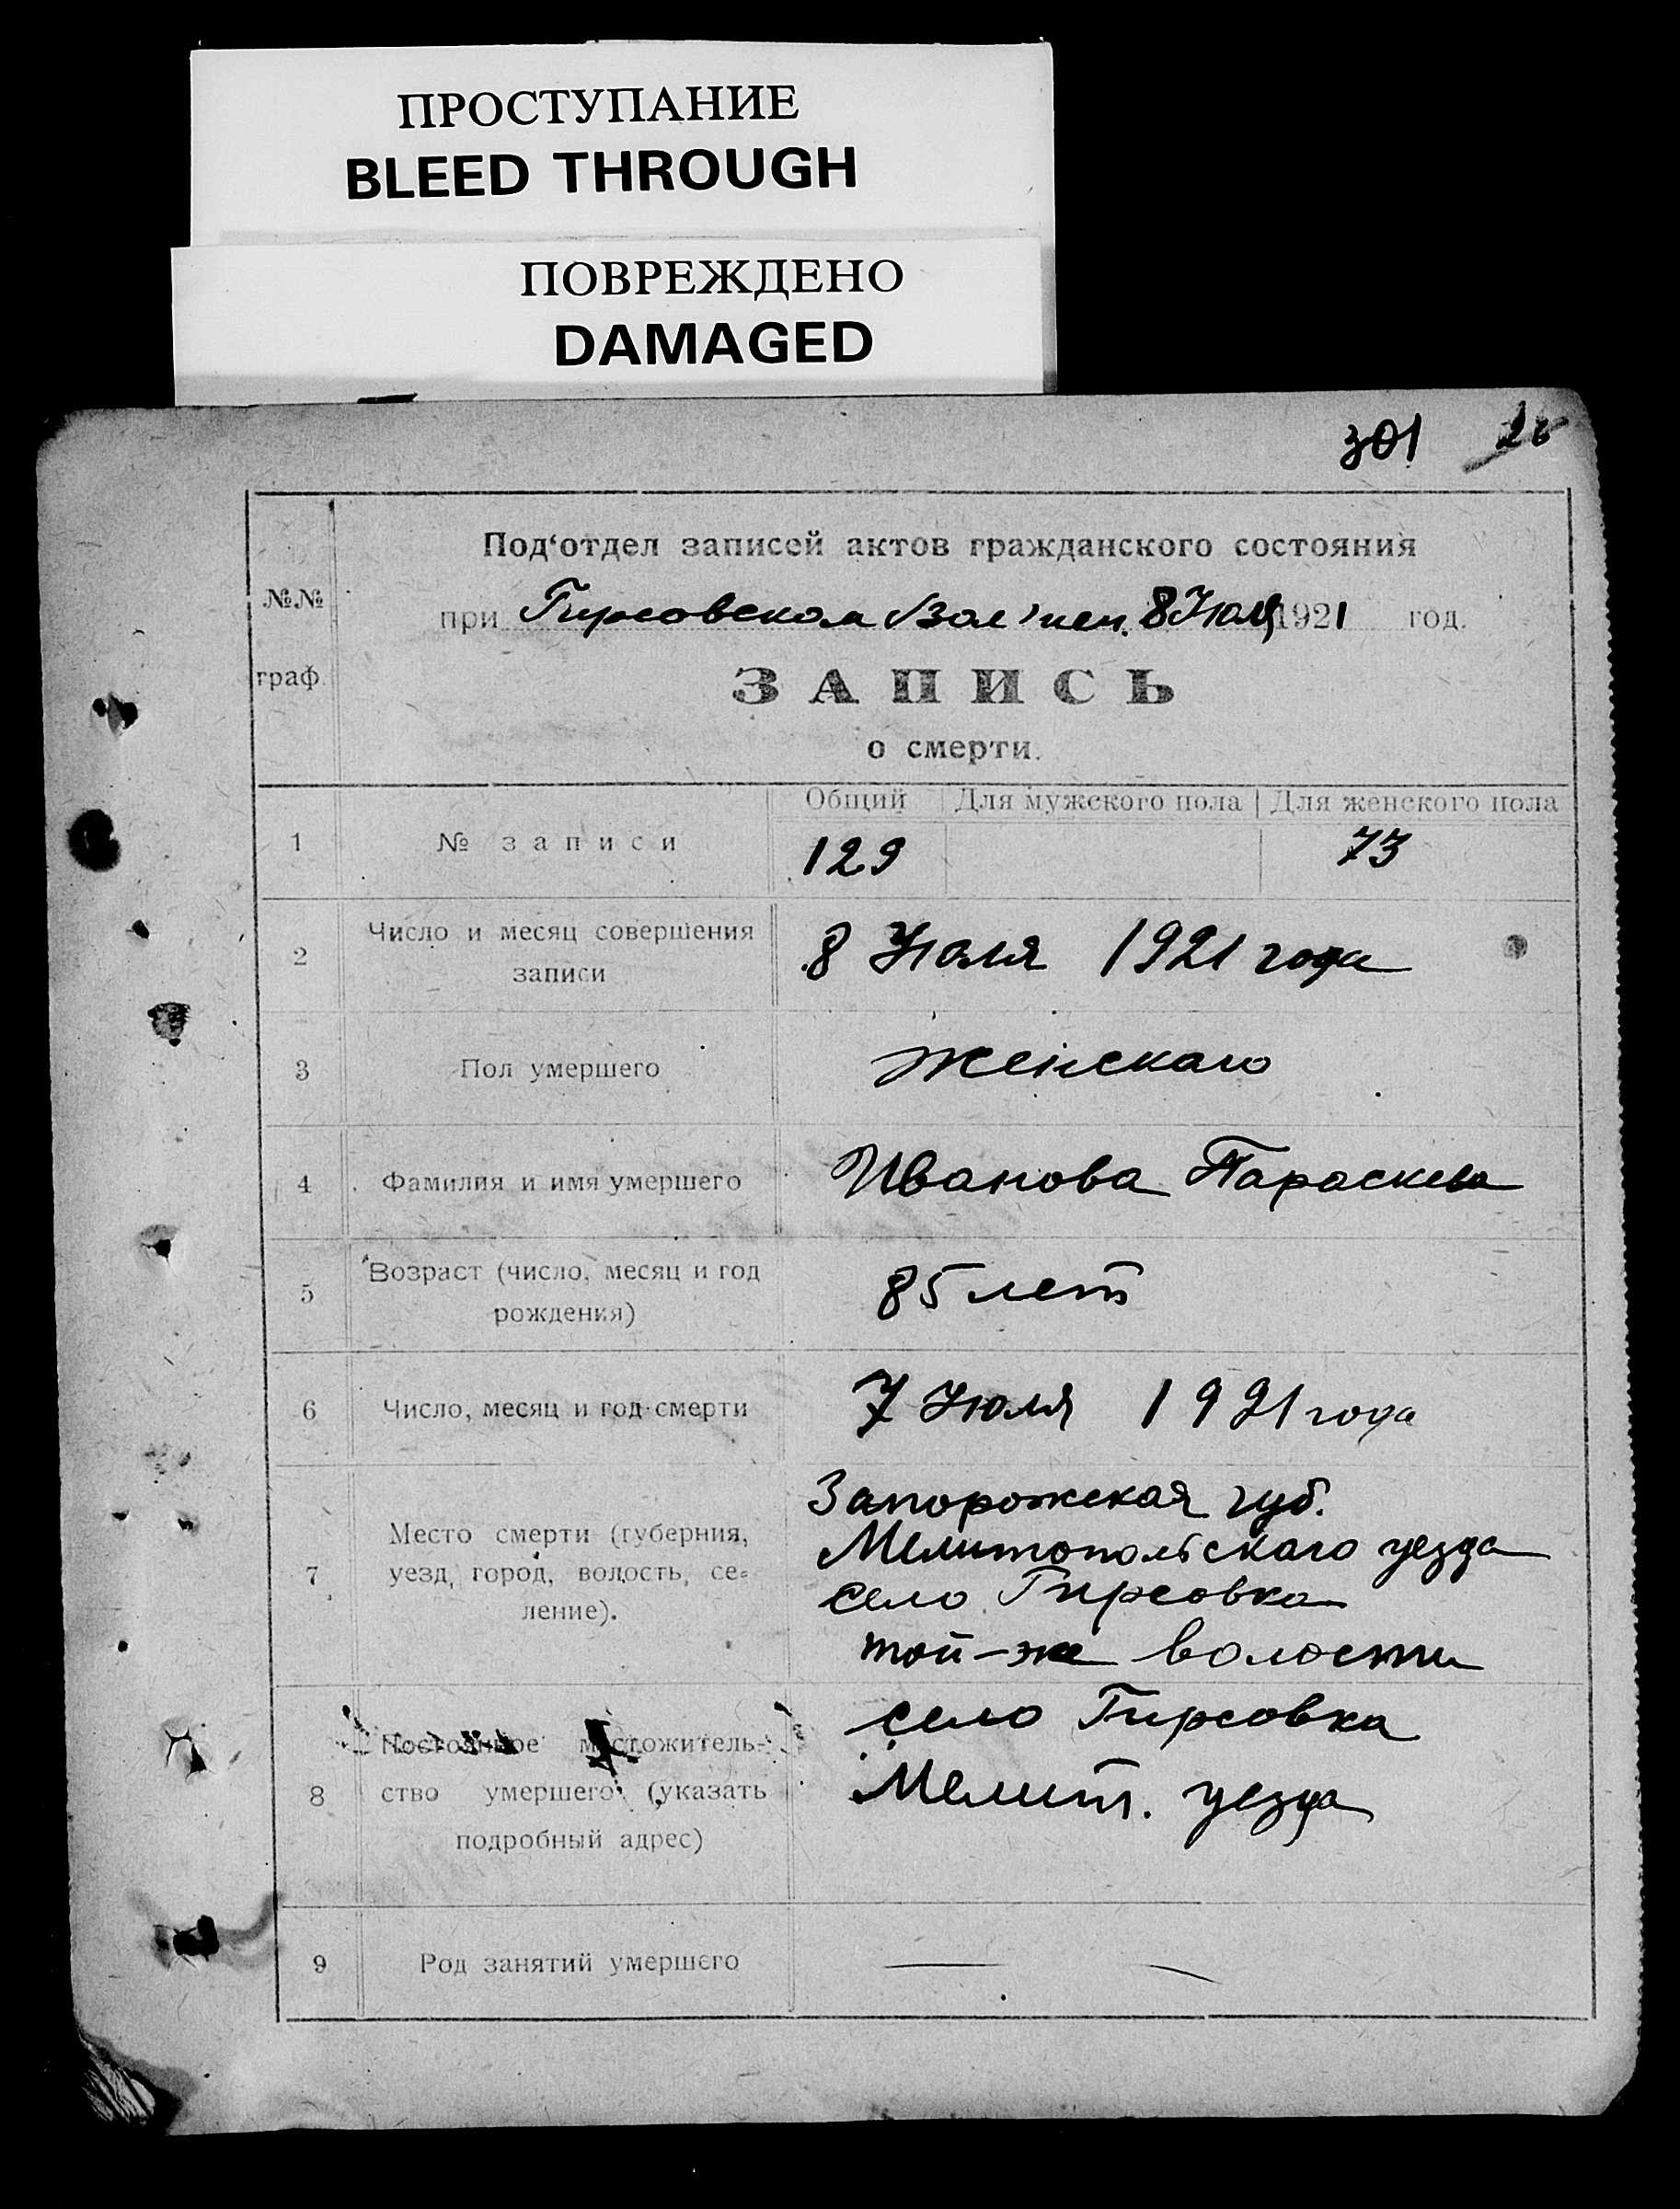 ПРОСТУПАНИЕ
BLEED THROUGH
ПОВРЕЖДЕНО
DAMAGED
301
№№
граф.
Под‘отдел записей актов гражданского состояния
при Гирсовском Вол 8 Июля 1921 год.
ЗАПИСЬ
о смерти.
Общий Для мужского пола Для женского пола
1 № записи 129 73
2 Число и месяц совершения 8 Июля 1921 года
записи
3 Пол умершего Женскаго
4 Фамилия и имя умершего Иванова Параскева
5 Возраст (число, месяц и год 85 лет
рождения)
6 Число, месяц и год смерти 7 Июля 1921 года
Запорожская губ.
Место смерти (губерния, Мелитопольскаго уезда
7 уезд, город, волость, се- село Гирсовка
ление). той-же волости
Постоянное местожитель- село Гирсовка
8 ство умершего (указать Мелит. уезда
подробный адрес)
9 Род занятий умершего —